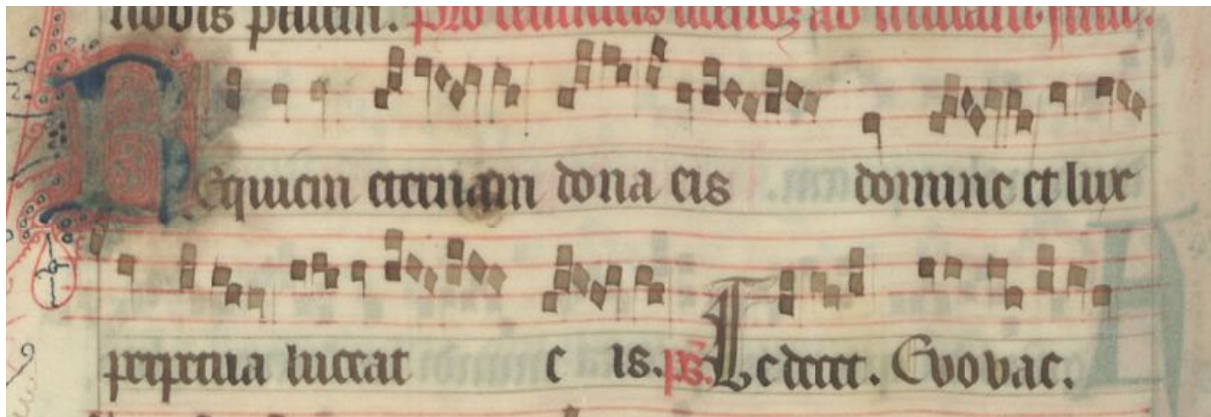 nobis pacem. Pro ad
Requiem eternam dona eis domine et lux
perpetua luceat e is. ps. Te decet. Evovae.